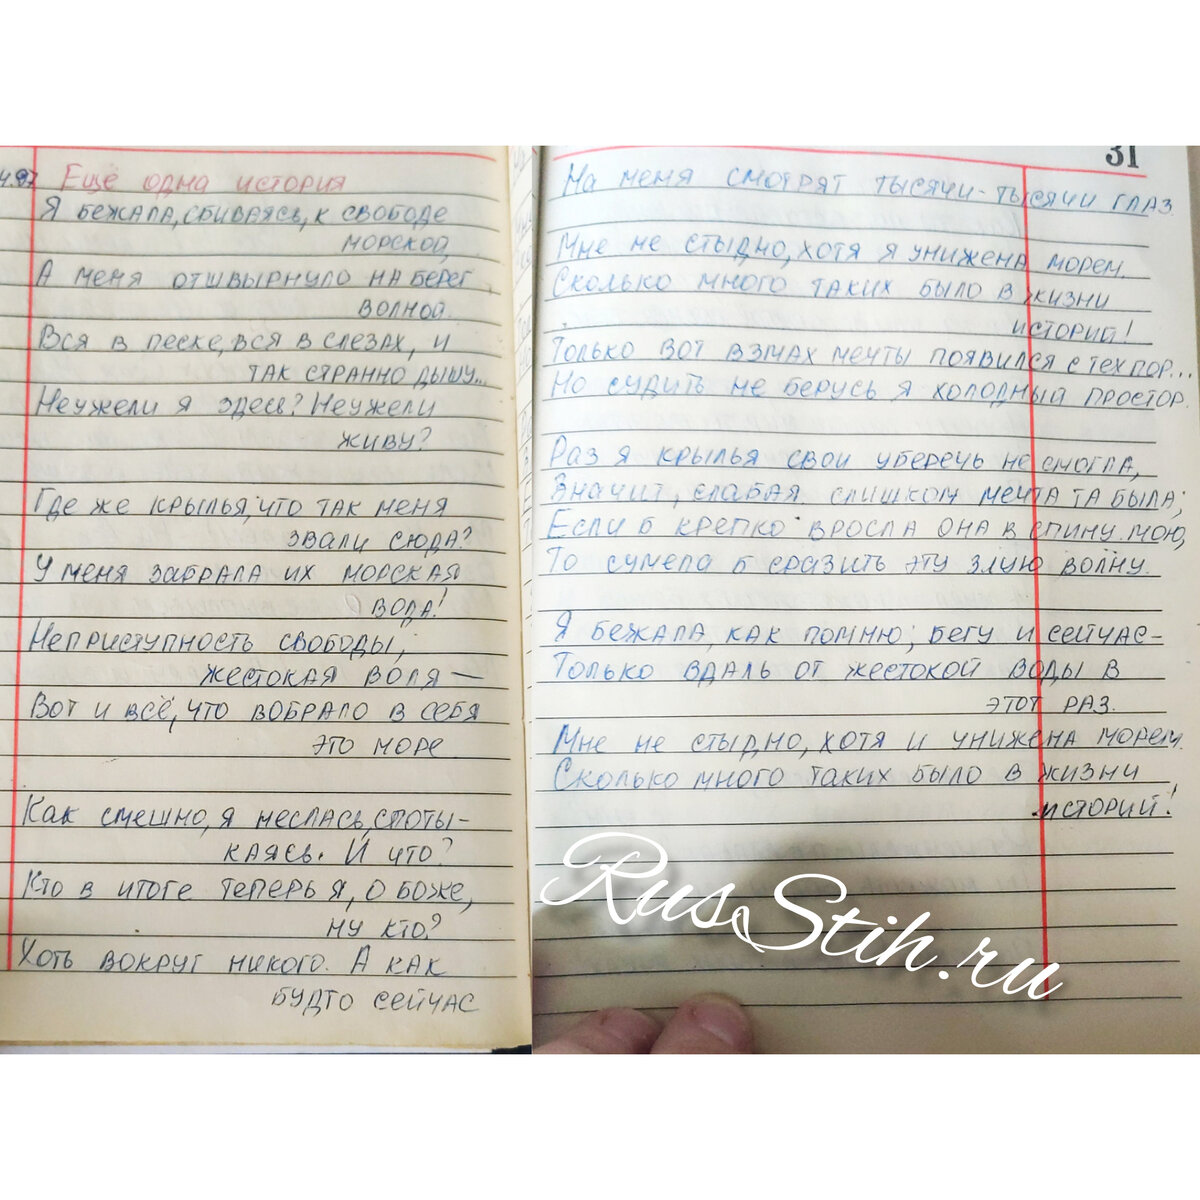 4.97 Ещё одна история
Я бежала, сбиваясь, к свободе
морской,
А меня отшвырнуло на берег
волной.
Вся в песке, вся в слезах, и
так странно дышу...
Неужели я здесь? Неужели
живу?
Где же крылья, что так меня
звали сюда?
У меня забрала их морская
вода!
Неприступность свободы,
жестокая воля —
Вот и всё, что вобрало в себя
это море
Как смешно, я неслась, споты-
каясь. И что?
Кто в итоге теперь я, о боже,
ну кто?
Хоть вокруг никого. А как
будто сейчас
31
На меня смотрят тысячи-тысячи глаз.
Мне не стыдно, хотя я унижена морем.
Сколько много таких было в жизни
историй!
Только вот взмах мечты появился с тех пор...
Но судить не берусь я холодный простор.
Раз я крылья свои уберечь не смогла,
Значит, слабая слишком мечта та была;
Если б крепко вросла она в спину мою,
То сумела б сразить эту злую волну.
Я бежала, как помню; бегу и сейчас –
Только вдаль от жестокой воды в
этот раз.
Мне не стыдно, хотя и унижена морем.
Сколько много таких было в жизни
историй!
RusStih.ru